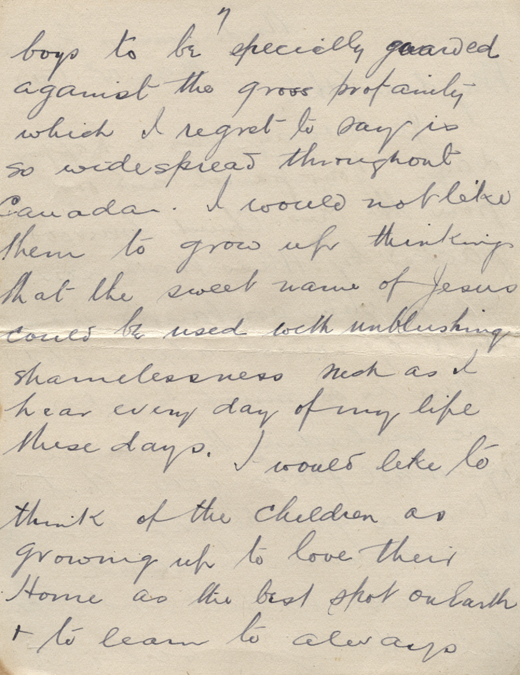 7
boys to be specially guarded
against the gross profanity
which I regret to say is
so widespread throughout
Canada. I would not like
them to grow up thinking
that the sweet name of Jesus
could be used with unblushing
shamelessness such as I
hear every day of my life
these days. I would like to
think of the children as
growing up to love their
Home as the best spot on Earth
+ to learn to always